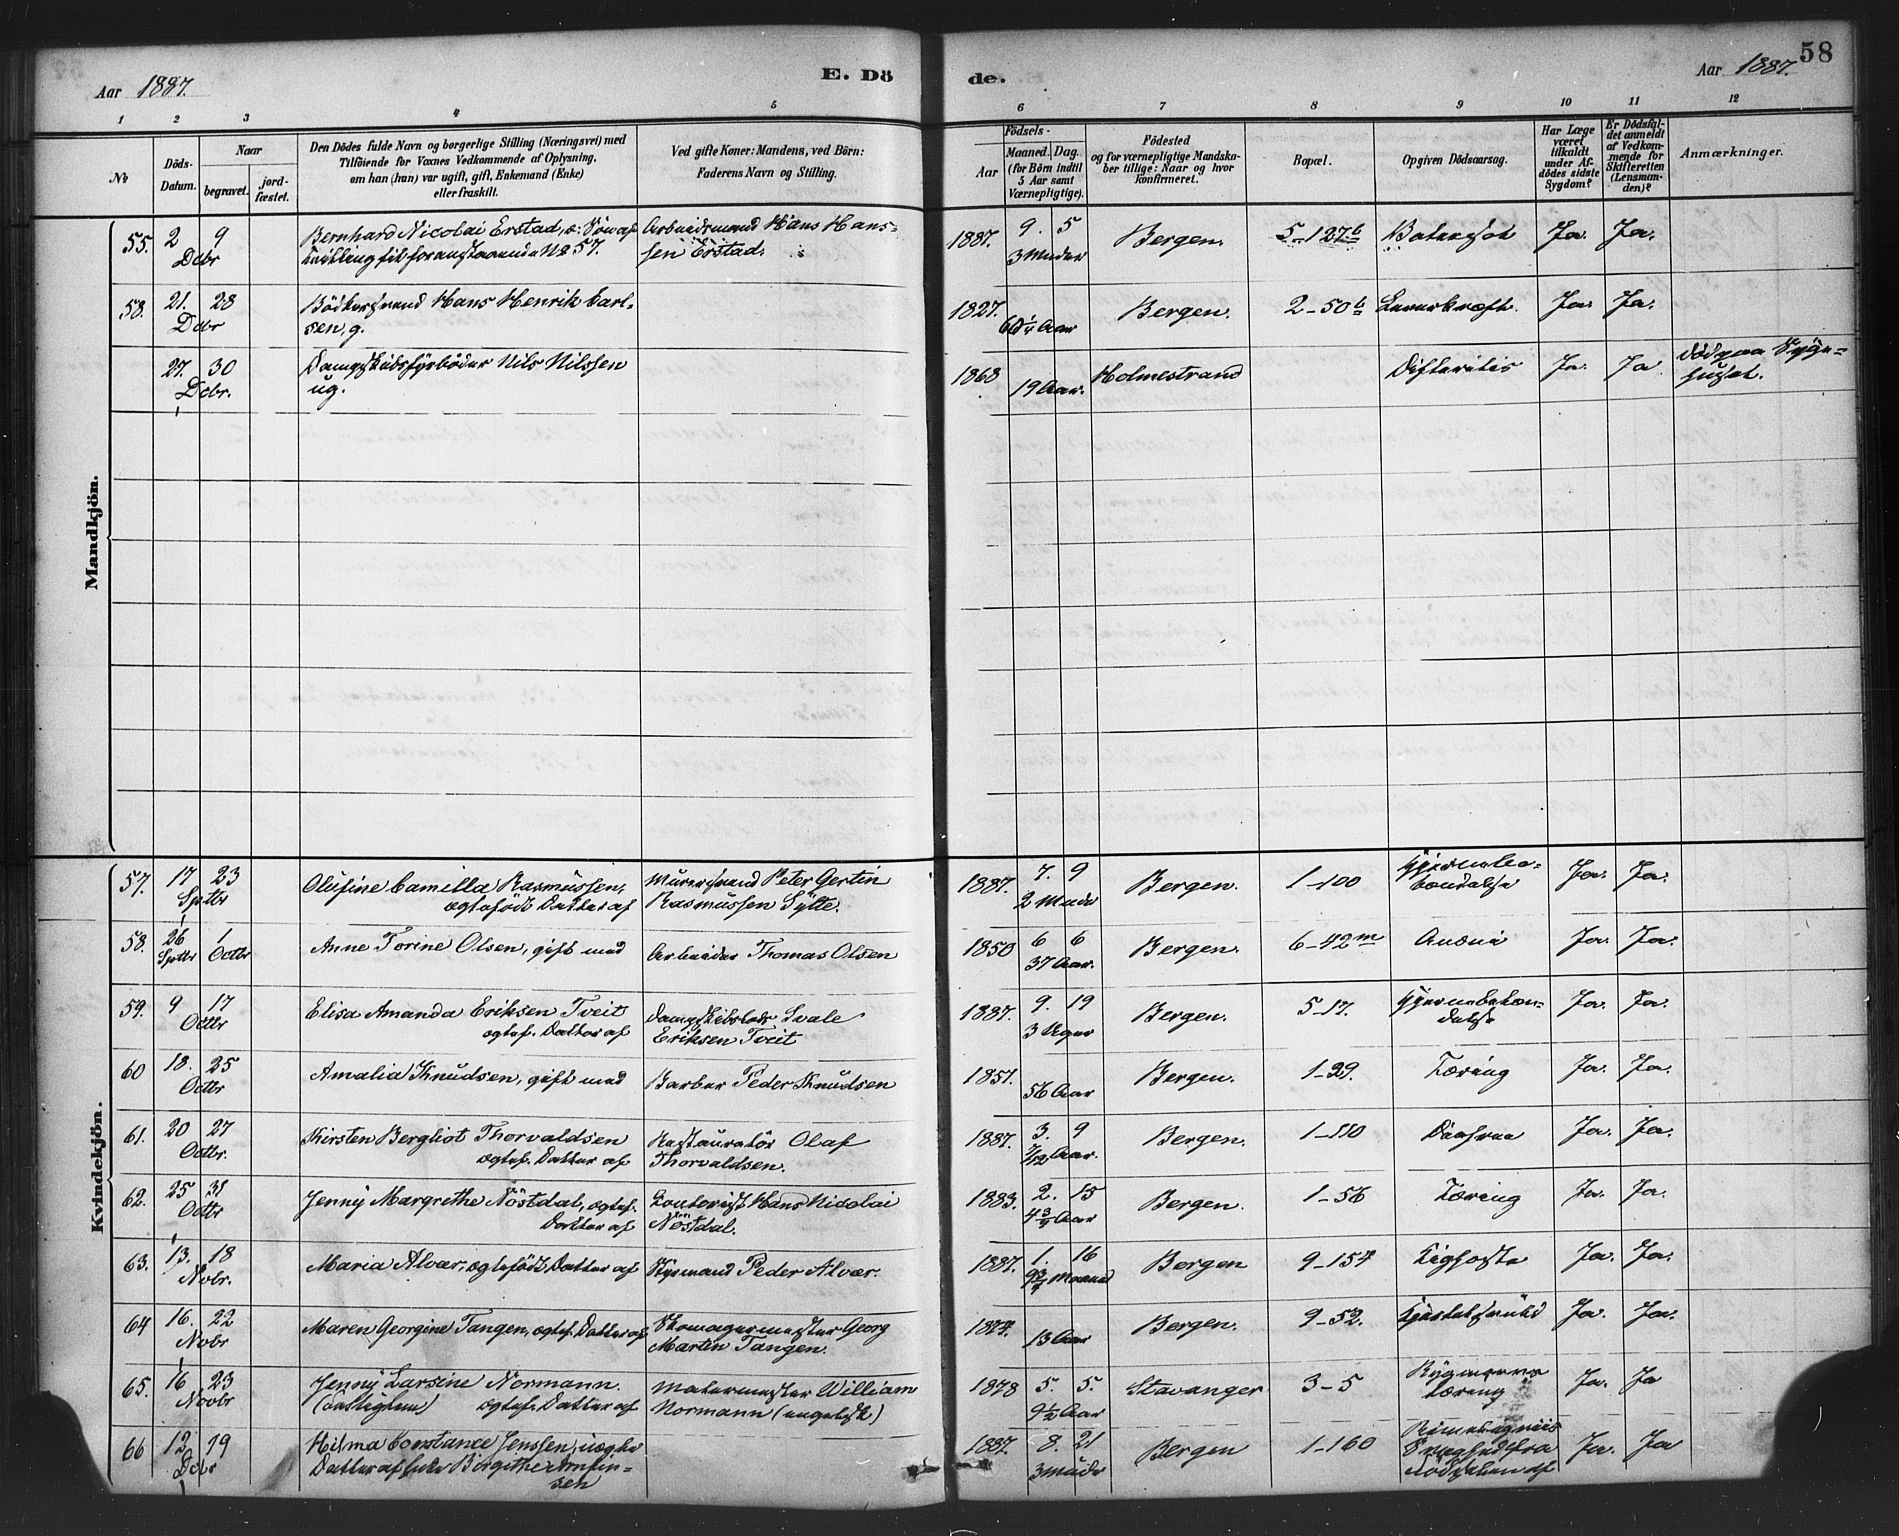 58
Aar 1887.
E. Döde.
Aar 1887.
1 2 3 4 5 6 7 8 9 10 11 12
No
Döds-Datum.
Naar
begravet.
jord-fæstet.
Den Dödes fulde Navn og borgerlige Stilling (Næringsvei) med
Tilföiende for Voxnes Vedkommende af Oplysning,
om han (hun) var ugift, gift, Enkemand (Enke)
eller fraskilt.
Ved gifte Koner: Mandens, ved Börn:
Faderens Navn og Stilling.
Födsels-
Aar
Maaned. Dag.
(for Börn indtil
5 Aar samt
Værnepligtige).
Födested
og for værnepligtige Mandska-
ber tillige: Naar og hvor
konfirmeret.
Bopæl.
Opgiven Dödsaarsag.
Har Læge
været
tilkaldt
under Af-
dödes sidste
Sygdom?
Er Dödsfal-
det anmeldt
af Vedkom-
mende for
Skifteretten
(Lensman-
den)?
Anmærkninger.
Mandkjön.
55. 2 9 Bernhard Nicolai Erstad, Sön af Arbeidsmand Hans Hans- 1887. 9. 5 Bergen. 5-127 Ja. Ja.
Dcbr No 57. sen Erstad. 3 Mndr
58. 21. 28 Bödkersvend Hans Henrik Carl- 1827. Bergen. 2-50 Leverkræft. Ja. Ja.
Dcbr sen, g. 60 1/4 Aar
27. 30 Dampskibsfyrböder Nils Nilssen 1868 Holmestrand Difteritis Ja. Ja död paa Syge-
Dcbr. ug. 19 Aar. huset.
Kvindekjön.
57. 17 23 Olufine Camilla Rasmussen, Murersvend Peter Gertin 1887. 7. 9 Bergen. 1-100 Ja. Ja.
Sptbr ægtefödt Datter af Rasmussen Sylte. 2 Mndr
58. 26 1 Anne Torine Olsen, gift med Arbeider Thomas Olsen 1850 6 6 Bergen. 6-42m Ja. Ja.
Sptbr Octbr 37 Aar.
59. 9 17 Elisa Amanda Eriksen Tveit 1887. 9. 19 Bergen. 5-17. Hjernebeten- Ja. Ja.
Octbr ægtef. Datter af Eriksen Tveit 3 Uger delse
60 18. 25 Amalia Knudsen, gift med Barber Peder Knudsen 1851. Bergen. 1-29. Tæring Ja. Ja.
Octbr 56 Aar
61. 20 27 Kirsten Bergliot Thorvaldsen Restauratör Olaf 1887. 3. 9 Bergen. 1-110 Ja. Ja.
Octbr. ægtef. Datter af Thorvaldsen. 7/12 Aar.
62. 25 31 Jenny Margrethe Nöstdal, ægtef. Hans Nicolai 1883. 2. 15 Bergen. 1-56 Tæring Ja. Ja.
Octbr Datter af Nöstdal. 4 3/4 Aar
63. 13. 18 Maria Alvær, ægtefödt Datter af Peder Alvær. 1887. 1. 16 Bergen 9-154 Kighoste Ja. Ja.
Nvbr. 9 3/4 Maaned
64 16. 22 Maren Georgine Tangen, ægtef. Datter af Skomagermester Georg 1874. Bergen. 9-52. Ja. Ja.
Nvbr Martin Tangen. 13 Aar
65. 16 23 Jenny Larsine Normann. William 1878 5. 5. Stavanger 3-5 Rygmarvs Ja. Ja
Novbr ægtef. Datter af Normann (engelsk) 9 1/2 Aar tæring
66 12. 19 Hilma Constance Jenssen, uægte 1887. 8. 21 Bergen 1-160 Ja. Ja
Dcbr Datter af Birgithe 3 Mndr
sen